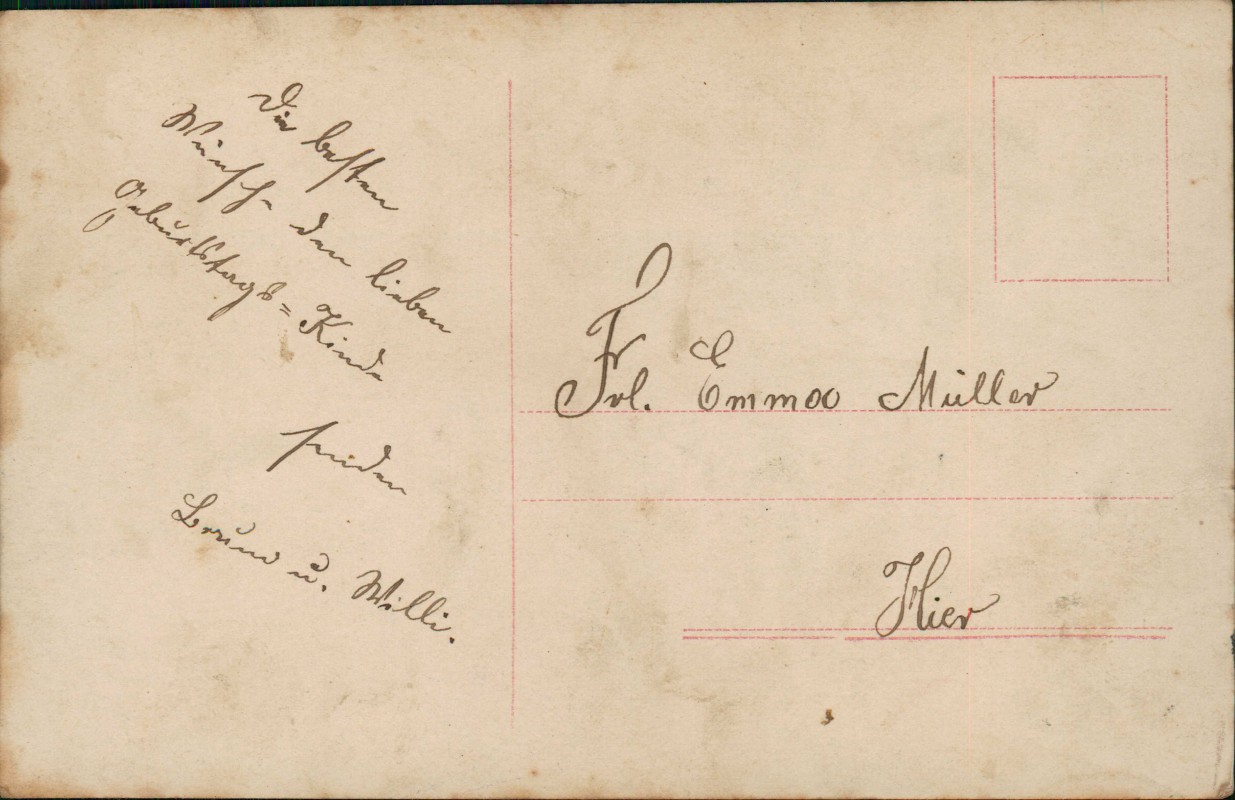 Die besten
Wünsche dem lieben
Geburtstags=Kinde
senden
Bruno u. Willi.
Frl. Emma Müller
Hier